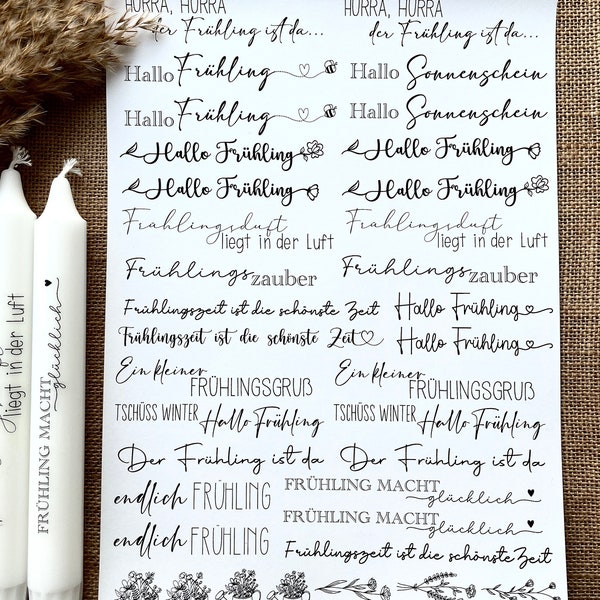 HURRA, HURRA
der Frühling ist da...
HURRA, HURRA
der Frühling ist da...
Hallo Frühling
Hallo Sonnenschein
Hallo Frühling
Hallo Sonnenschein
Hallo Frühling
Hallo Frühling
Hallo Frühling
Hallo Frühling
Frühlingsduft
liegt in der Luft
Frühlingsduft
liegt in der Luft
Frühlingszauber
Frühlingszauber
Frühlingszeit ist die schönste Zeit
Hallo Frühling
Frühlingszeit ist die schönste Zeit
Hallo Frühling
Ein kleiner
FRÜHLINGSGRUß
Ein kleiner
FRÜHLINGSGRUß
TSCHÜSS WINTER Hallo Frühling
TSCHÜSS WINTER Hallo Frühling
Der Frühling ist da
Der Frühling ist da
endlich FRÜHLING
FRÜHLING MACHT
glücklich
endlich FRÜHLING
FRÜHLING MACHT
glücklich
Frühlingszeit ist die schönste Zeit
liegt in der Luft
FRÜHLING MACHT
glücklich